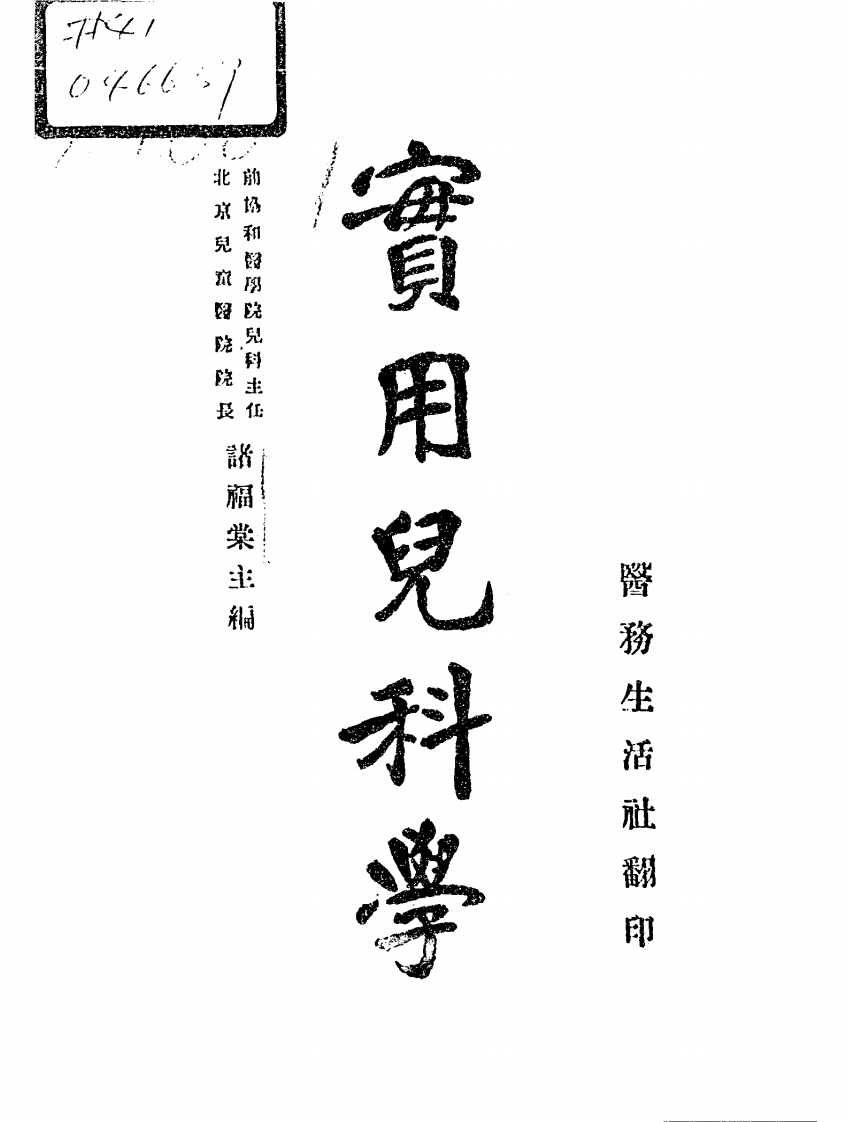 井41
046659
前協和醫學院兒科主任
北京兒童醫院院長
諸福棠主編
實用兒科學
醫務生活社翻印